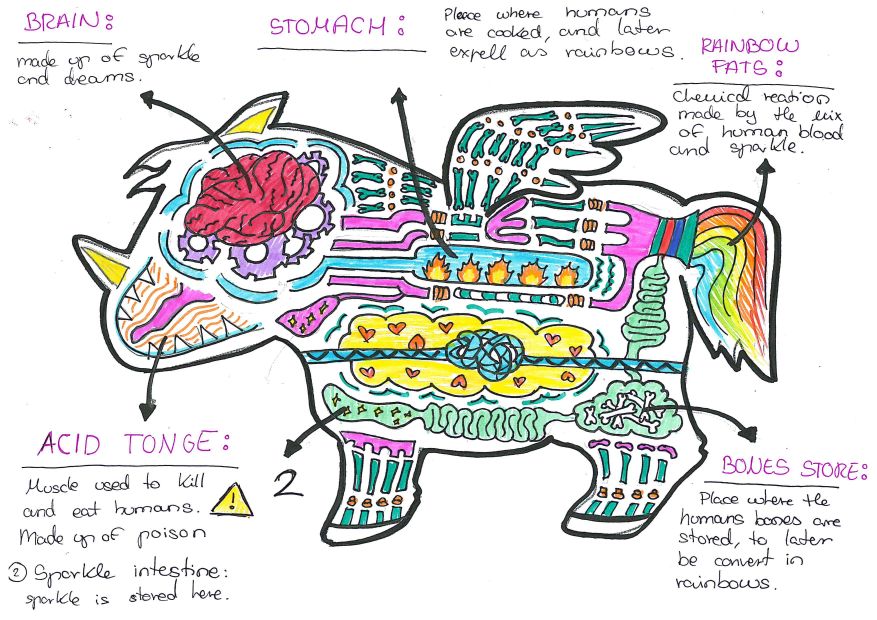 BRAIN:
made up of sparkle
and dreams.
STOMACH:
Place where humans
are cooked, and later
expell as rainbows.
RAINBOW
FATS:
Chemical reation
made by the mix
of human blood
and sparkle.
ACID TONGE:
Muscle used to kill
and eat humans.
Made up of poison
! 2
② Sparkle intestine:
sparkle is stored here.
BONES STORE:
Place where the
humans bones are
stored, to later
be convert in
rainbows.